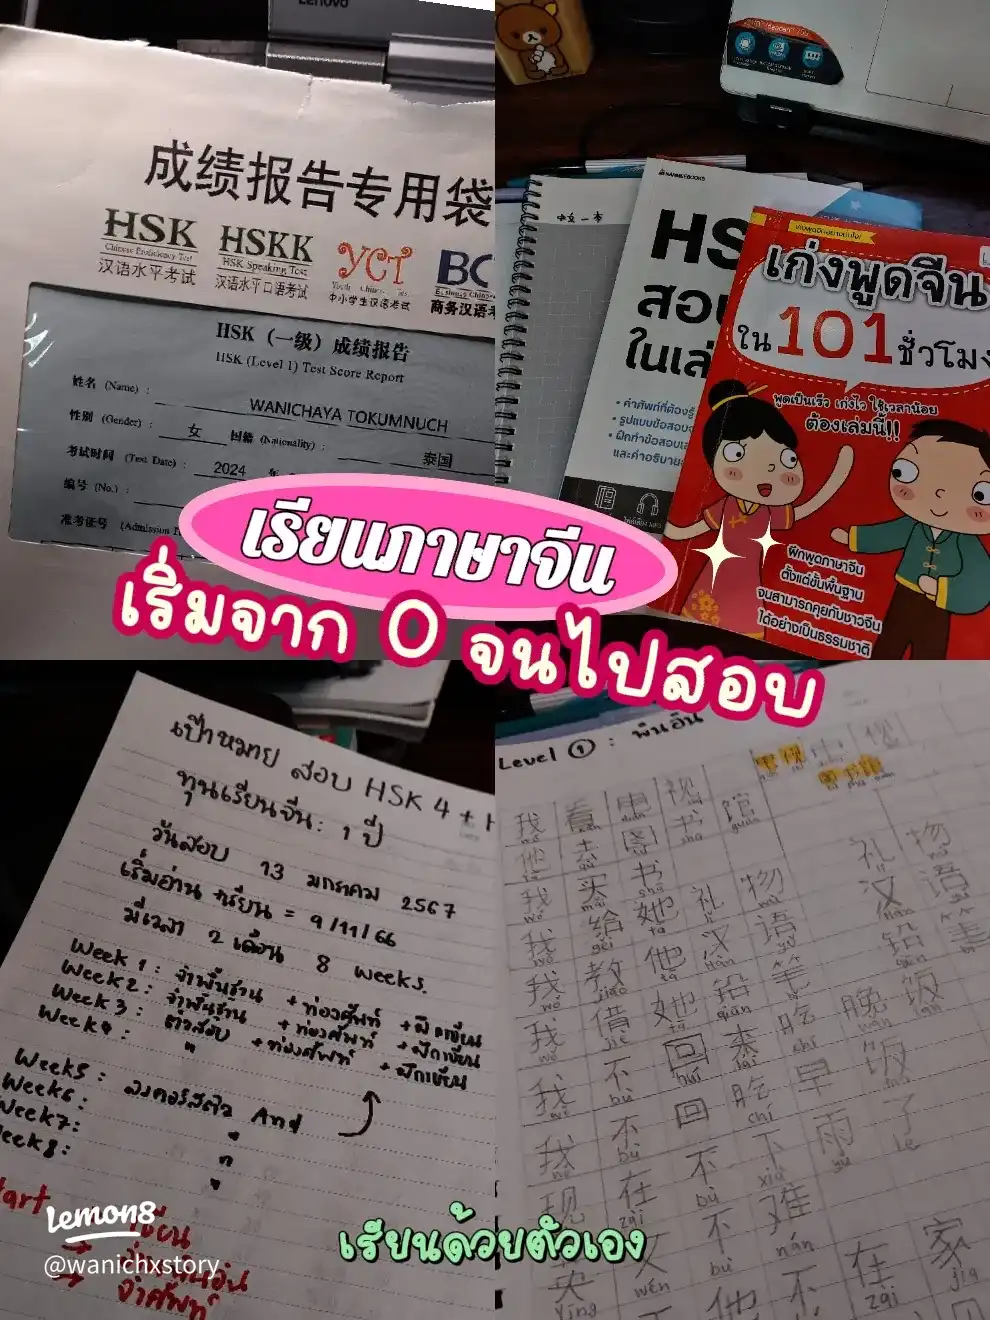 Lenovo
成绩报告专用袋
HSK
Chinese Proficiency Test
汉语水平考试
HSKK
HSK Speaking Test
汉语水平口语考试
YCT
中小学生汉语考试
BC
商务汉语考
HSK（一级）成绩报告
HSK (Level 1) Test Score Report
姓名 (Name) :
WANICHAYA TOKUMNUCH
性别 (Gender) : 女 国籍 (Nationality) : 泰国
考试时间 (Test Date) : 2024 年
编号 (No.) :
准考证号 (Admission
NANMEEBOOKS
HS
สอบ
ในเล่
• คำศัพท์ที่ต้องรู้
• รูปแบบข้อสอบ
• ฝึกทำข้อสอบ
และคำอธิบาย
เก่งพูดจีน
ใน 101 ชั่วโมง
พูดเป็นเร็ว เก่งไว ใช้เวลาน้อย
ต้องเล่มนี้!!
ฝึกพูดภาษาจีน
ตั้งแต่ขั้นพื้นฐาน
จนสามารถคุยกับชาวจีน
ได้อย่างเป็นธรรมชาติ
เรียนภาษาจีน
เริ่มจาก 0 จนไปสอบ
เป้าหมาย สอบ HSK 4 + H
ทุนเรียนจีน : 1 ปี
วันสอบ 13 มกราคม 2567
เริ่มอ่าน +เรียน = 9/11/66
มีเวลา 2 เดือน 8 weeks.
Week 1 : จำพื้นฐาน + ท่องศัพท์ + ฝึกเขียน
Week 2 : จำพื้นฐาน + ท่องศัพท์ + ฝึกเขียน
Week 3 : ติวสอบ + ท่องศัพท์ + ฝึกเขียน
Week 4 : "
Week 5 : ลงคอร์สติว And
Week 6 :
Week 7 :
eek 8 :
tart
เรียน
จำศัพท์
Level ① : พินอิน
我 看 电 视
他 去 图 书 馆
我 买 书
我 给 她 礼 物
我 教 他 汉 语
我 借 她 铅 笔
我 不 回 来 吃 晚 饭
我 不 回 吃 早 饭
现 在 不 下 雨 了
英 文 不 难
他 不 在 家
礼 物
汉 语
铅 笔
เรียนด้วยตัวเอง
Lemon8
@wanichxstory